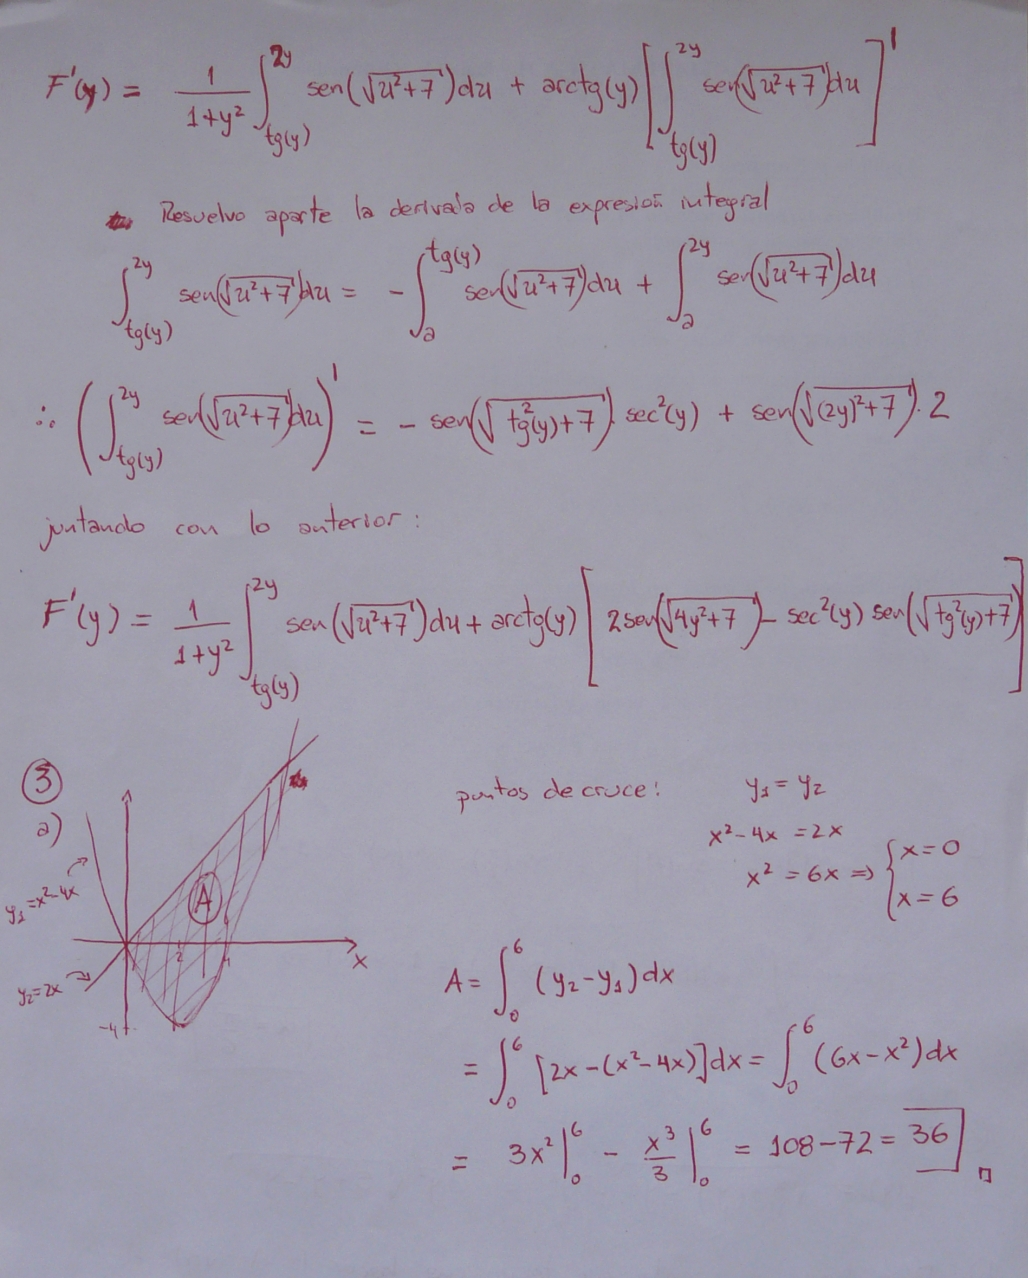 F'(y) = 1/(1+y²) ∫_{tg(y)}^{2y} sen(√(u²+7)) du + arctg(y) [∫_{tg(y)}^{2y} sen(√(u²+7)) du]'
Resuelvo aparte la derivada de la expresión integral
∫_{tg(y)}^{2y} sen(√(u²+7)) du = - ∫_a^{tg(y)} sen(√(u²+7)) du + ∫_a^{2y} sen(√(u²+7)) du
∴ (∫_{tg(y)}^{2y} sen(√(u²+7)) du)' = - sen(√(tg²(y)+7)) . sec²(y) + sen(√((2y)²+7)) . 2
juntando con lo anterior :
F'(y) = 1/(1+y²) ∫_{tg(y)}^{2y} sen(√(u²+7)) du + arctg(y) [2sen(√(4y²+7)) - sec²(y) sen(√(tg²(y)+7))]
③
a)
y₁=x²-4x
y₂=2x
A
2
4
x
-4
puntos de cruce: y₁ = y₂
x²-4x = 2x
x² = 6x ⇒ { x=0
x=6
A = ∫₀⁶ (y₂-y₁) dx
= ∫₀⁶ [2x-(x²-4x)] dx = ∫₀⁶ (6x-x²) dx
= 3x² |₀⁶ - x³/3 |₀⁶ = 108-72 = 36